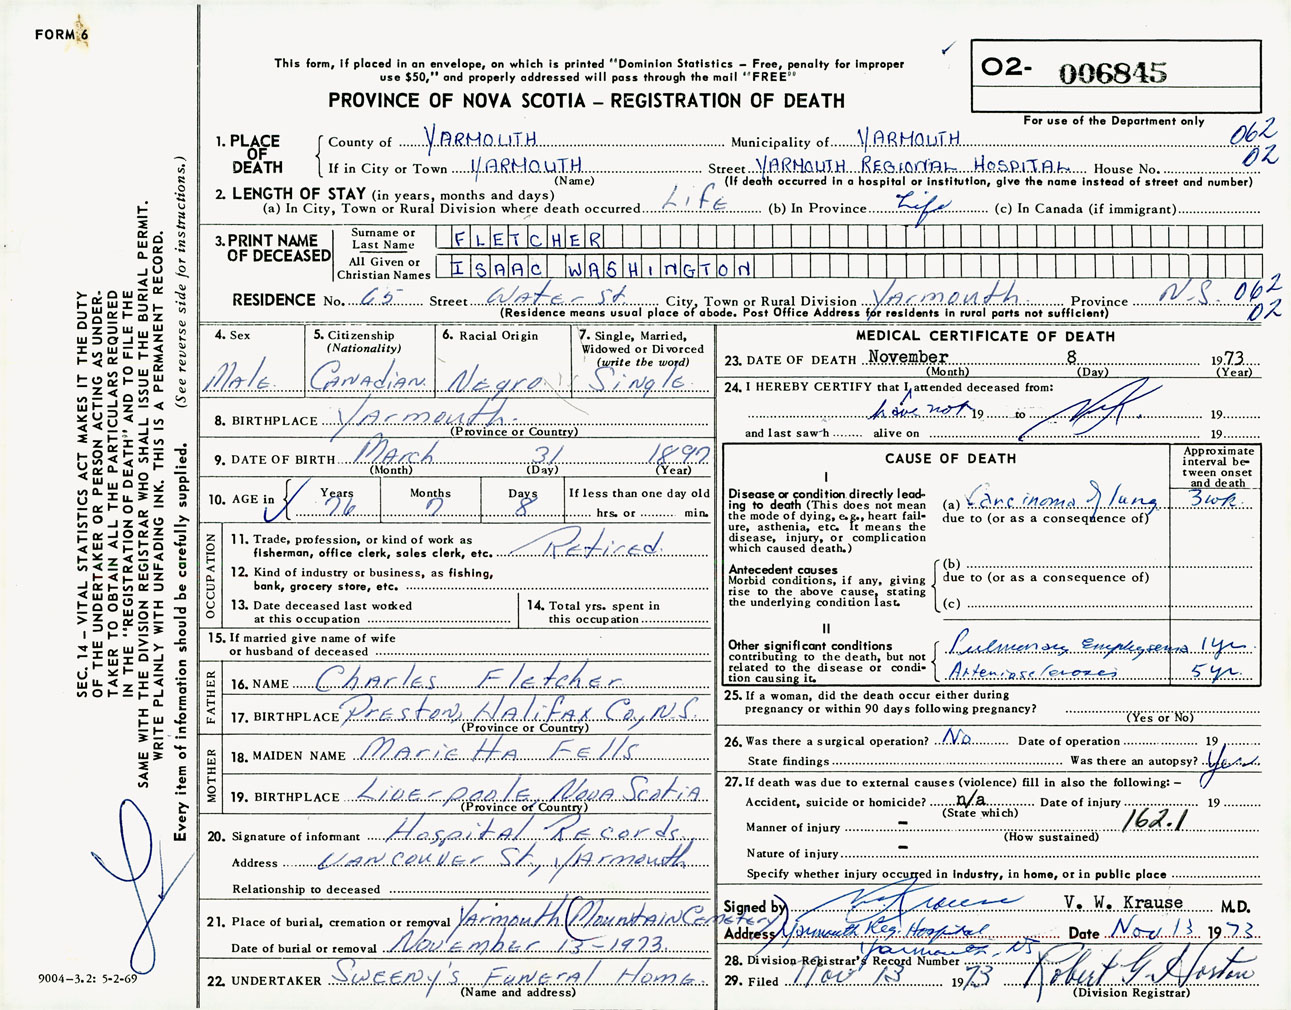 FORM 6
This form, if placed in an envelope, on which is printed "Dominion Statistics – Free, penalty for improper
use $50," and properly addressed will pass through the mail "FREE"
PROVINCE OF NOVA SCOTIA – REGISTRATION OF DEATH
O2- 006845
For use of the Department only
062
02
1. PLACE OF DEATH
County of YARMOUTH Municipality of YARMOUTH
If in City or Town YARMOUTH Street YARMOUTH REGIONAL HOSPITAL House No.
(Name) (If death occurred in a hospital or institution, give the name instead of street and number)
2. LENGTH OF STAY (in years, months and days)
(a) In City, Town or Rural Division where death occurred Life (b) In Province Life (c) In Canada (if immigrant)
3. PRINT NAME OF DECEASED
Surname or Last Name FLETCHER
All Given or Christian Names ISAAC WASHINGTON
RESIDENCE No. 65 Street Water St City, Town or Rural Division Yarmouth Province N.S. 062
02
(Residence means usual place of abode. Post Office Address for residents in rural parts not sufficient)
4. Sex
Male
5. Citizenship
(Nationality)
Canadian
6. Racial Origin
Negro
7. Single, Married,
Widowed or Divorced
(write the word)
Single
8. BIRTHPLACE Yarmouth
(Province or Country)
9. DATE OF BIRTH March 31 1897
(Month) (Day) (Year)
10. AGE in
Years Months Days If less than one day old
76 7 8 hrs. or min.
OCCUPATION
11. Trade, profession, or kind of work as
fisherman, office clerk, sales clerk, etc. Retired
12. Kind of industry or business, as fishing,
bank, grocery store, etc.
13. Date deceased last worked
at this occupation
14. Total yrs. spent in
this occupation
15. If married give name of wife
or husband of deceased
FATHER
16. NAME Charles Fletcher
17. BIRTHPLACE Preston, Halifax Co., N.S.
(Province or Country)
MOTHER
18. MAIDEN NAME Marietta Fells
19. BIRTHPLACE Liverpoole, Nova Scotia
(Province or Country)
20. Signature of informant Hospital Records
Address Vancouver St, Yarmouth
Relationship to deceased
21. Place of burial, cremation or removal Yarmouth (Mountain Cemetery)
Date of burial or removal November 13-1973
22. UNDERTAKER Sweeny's Funeral Home
(Name and address)
MEDICAL CERTIFICATE OF DEATH
23. DATE OF DEATH November 8 1973
(Month) (Day) (Year)
24. I HEREBY CERTIFY that I attended deceased from:
have not 19 to 19
and last saw h alive on 19
CAUSE OF DEATH
Approximate
interval be-
tween onset
and death
I
Disease or condition directly lead-
ing to death (This does not mean
the mode of dying, e.g., heart fail-
ure, asthenia, etc. It means the
disease, injury, or complication
which caused death.)
(a) Carcinoma of lung 3 wk.
due to (or as a consequence of)
Antecedent causes
Morbid conditions, if any, giving
rise to the above cause, stating
the underlying condition last.
(b)
due to (or as a consequence of)
(c)
II
Other significant conditions
contributing to the death, but not
related to the disease or condi-
tion causing it.
Pulmonary Emphysema 1 yr.
Arteriosclerosis 5 yr.
25. If a woman, did the death occur either during
pregnancy or within 90 days following pregnancy?
(Yes or No)
26. Was there a surgical operation? No Date of operation 19
State findings Was there an autopsy? Yes
27. If death was due to external causes (violence) fill in also the following: –
Accident, suicide or homicide? n/a Date of injury 19
(State which)
Manner of injury – 162.1
(How sustained)
Nature of injury –
Specify whether injury occurred in industry, in home, or in public place
Signed by V. W. Krause M.D.
Address Yarmouth Reg. Hospital Date Nov 13 1973
Yarmouth, NS
28. Division Registrar's Record Number
29. Filed Nov 13 1973 Robert G. Horton
(Division Registrar)
SEC. 14 – VITAL STATISTICS ACT MAKES IT THE DUTY
OF THE UNDERTAKER OR PERSON ACTING AS UNDER-
TAKER TO OBTAIN ALL THE PARTICULARS REQUIRED
IN THE "REGISTRATION OF DEATH" AND TO FILE THE
SAME WITH THE DIVISION REGISTRAR WHO SHALL ISSUE THE BURIAL PERMIT.
WRITE PLAINLY WITH UNFADING INK. THIS IS A PERMANENT RECORD.
Every item of information should be carefully supplied. (See reverse side for instructions.)
9004–3.2: 5-2-69